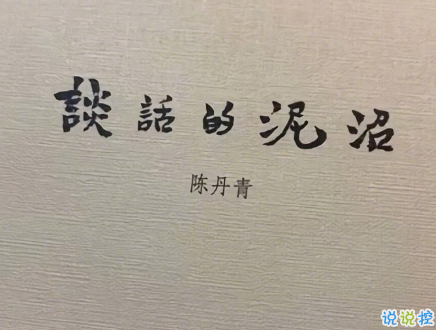 談話的泥沼
陈丹青
说说控